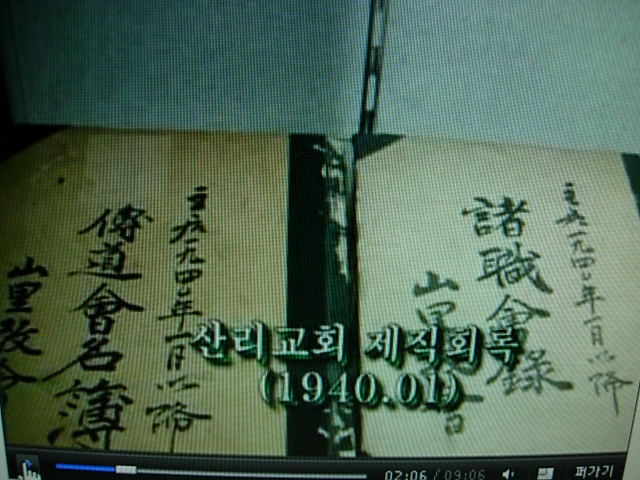 主后一九四〇年一月以降
諸職會錄
山里
主后一九四〇年一月以降
傳道會名簿
山里敎会
산리교회 제직회록
(1940.01)
02:06 / 09:06
퍼가기